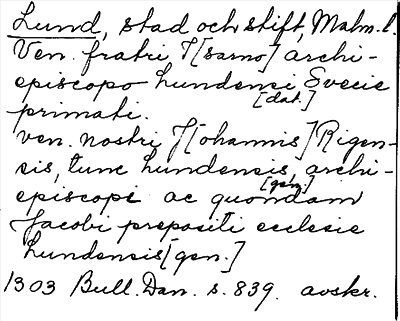 Lund, stad och stift, Malm. l.
Ven. fratri J[sarno] archi-
episcopo Lundensi Svecie
[dat.]
primati.
ven. nostri J[ohannis] Rigen-
sis, tunc Lundensis, archi-
[gen.]
episcopi ac quondam
Jacobi prepositi ecclesie
Lundensis [gen.]
1303 Bull. Dan. s. 839. avskr.